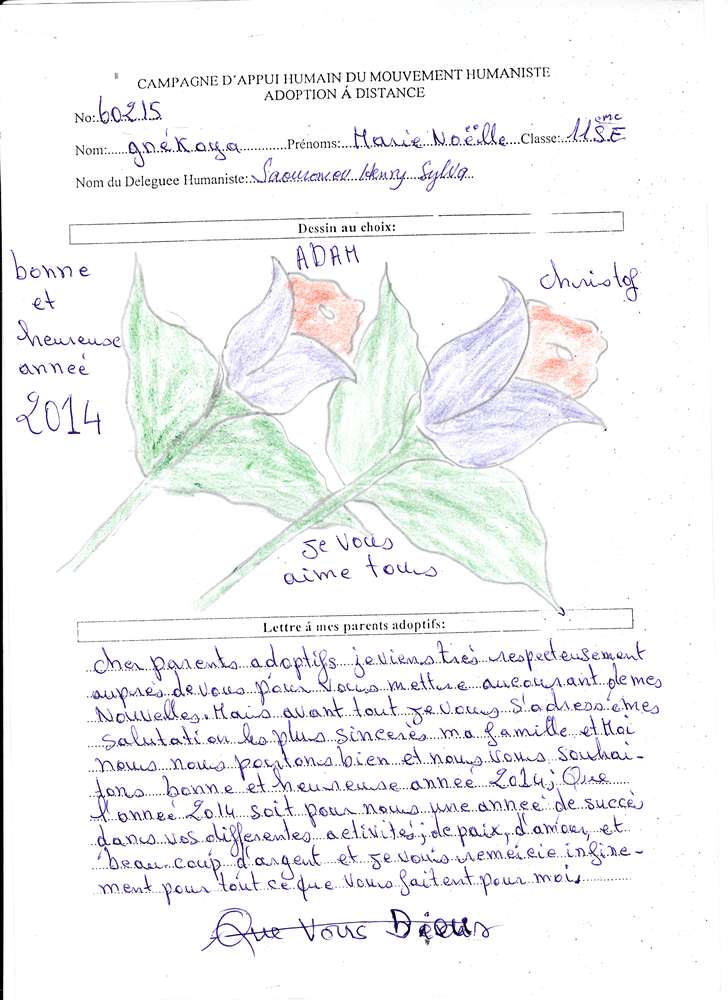 CAMPAGNE D'APPUI HUMAIN DU MOUVEMENT HUMANISTE
ADOPTION Á DISTANCE
No: 60215
Nom:.....gnékoya............Prénoms:...Marie Noëlle....Classe:..11ème SE
Nom du Deleguee Humaniste:.Saoumou Henry Sylva..
Dessin au choix:
bonne
et
heureuse
anneé
2014
ADAM
christof
je vous
aime tous
Lettre á mes parents adoptifs:
cher parents adoptifs je viens très respecteusement
auprès de vous pour vous mettre aucourant de mes
Nouvelles. Mais avant tout je vous s'adresse mes
salutation les plus sincerès ma famille et Moi
nous nous portons bien et nous vous souhai-
tons bonne et heureuse anneé 2014; Que
l'anneé 2014 soit pour nous une anneé de succè
dans vos differentes activités; de paix, d'amour, et
beau-coup d'argent et je vous remércie infine-
ment pour tout ce que vous faitent pour moi.
Que Vous Dieu